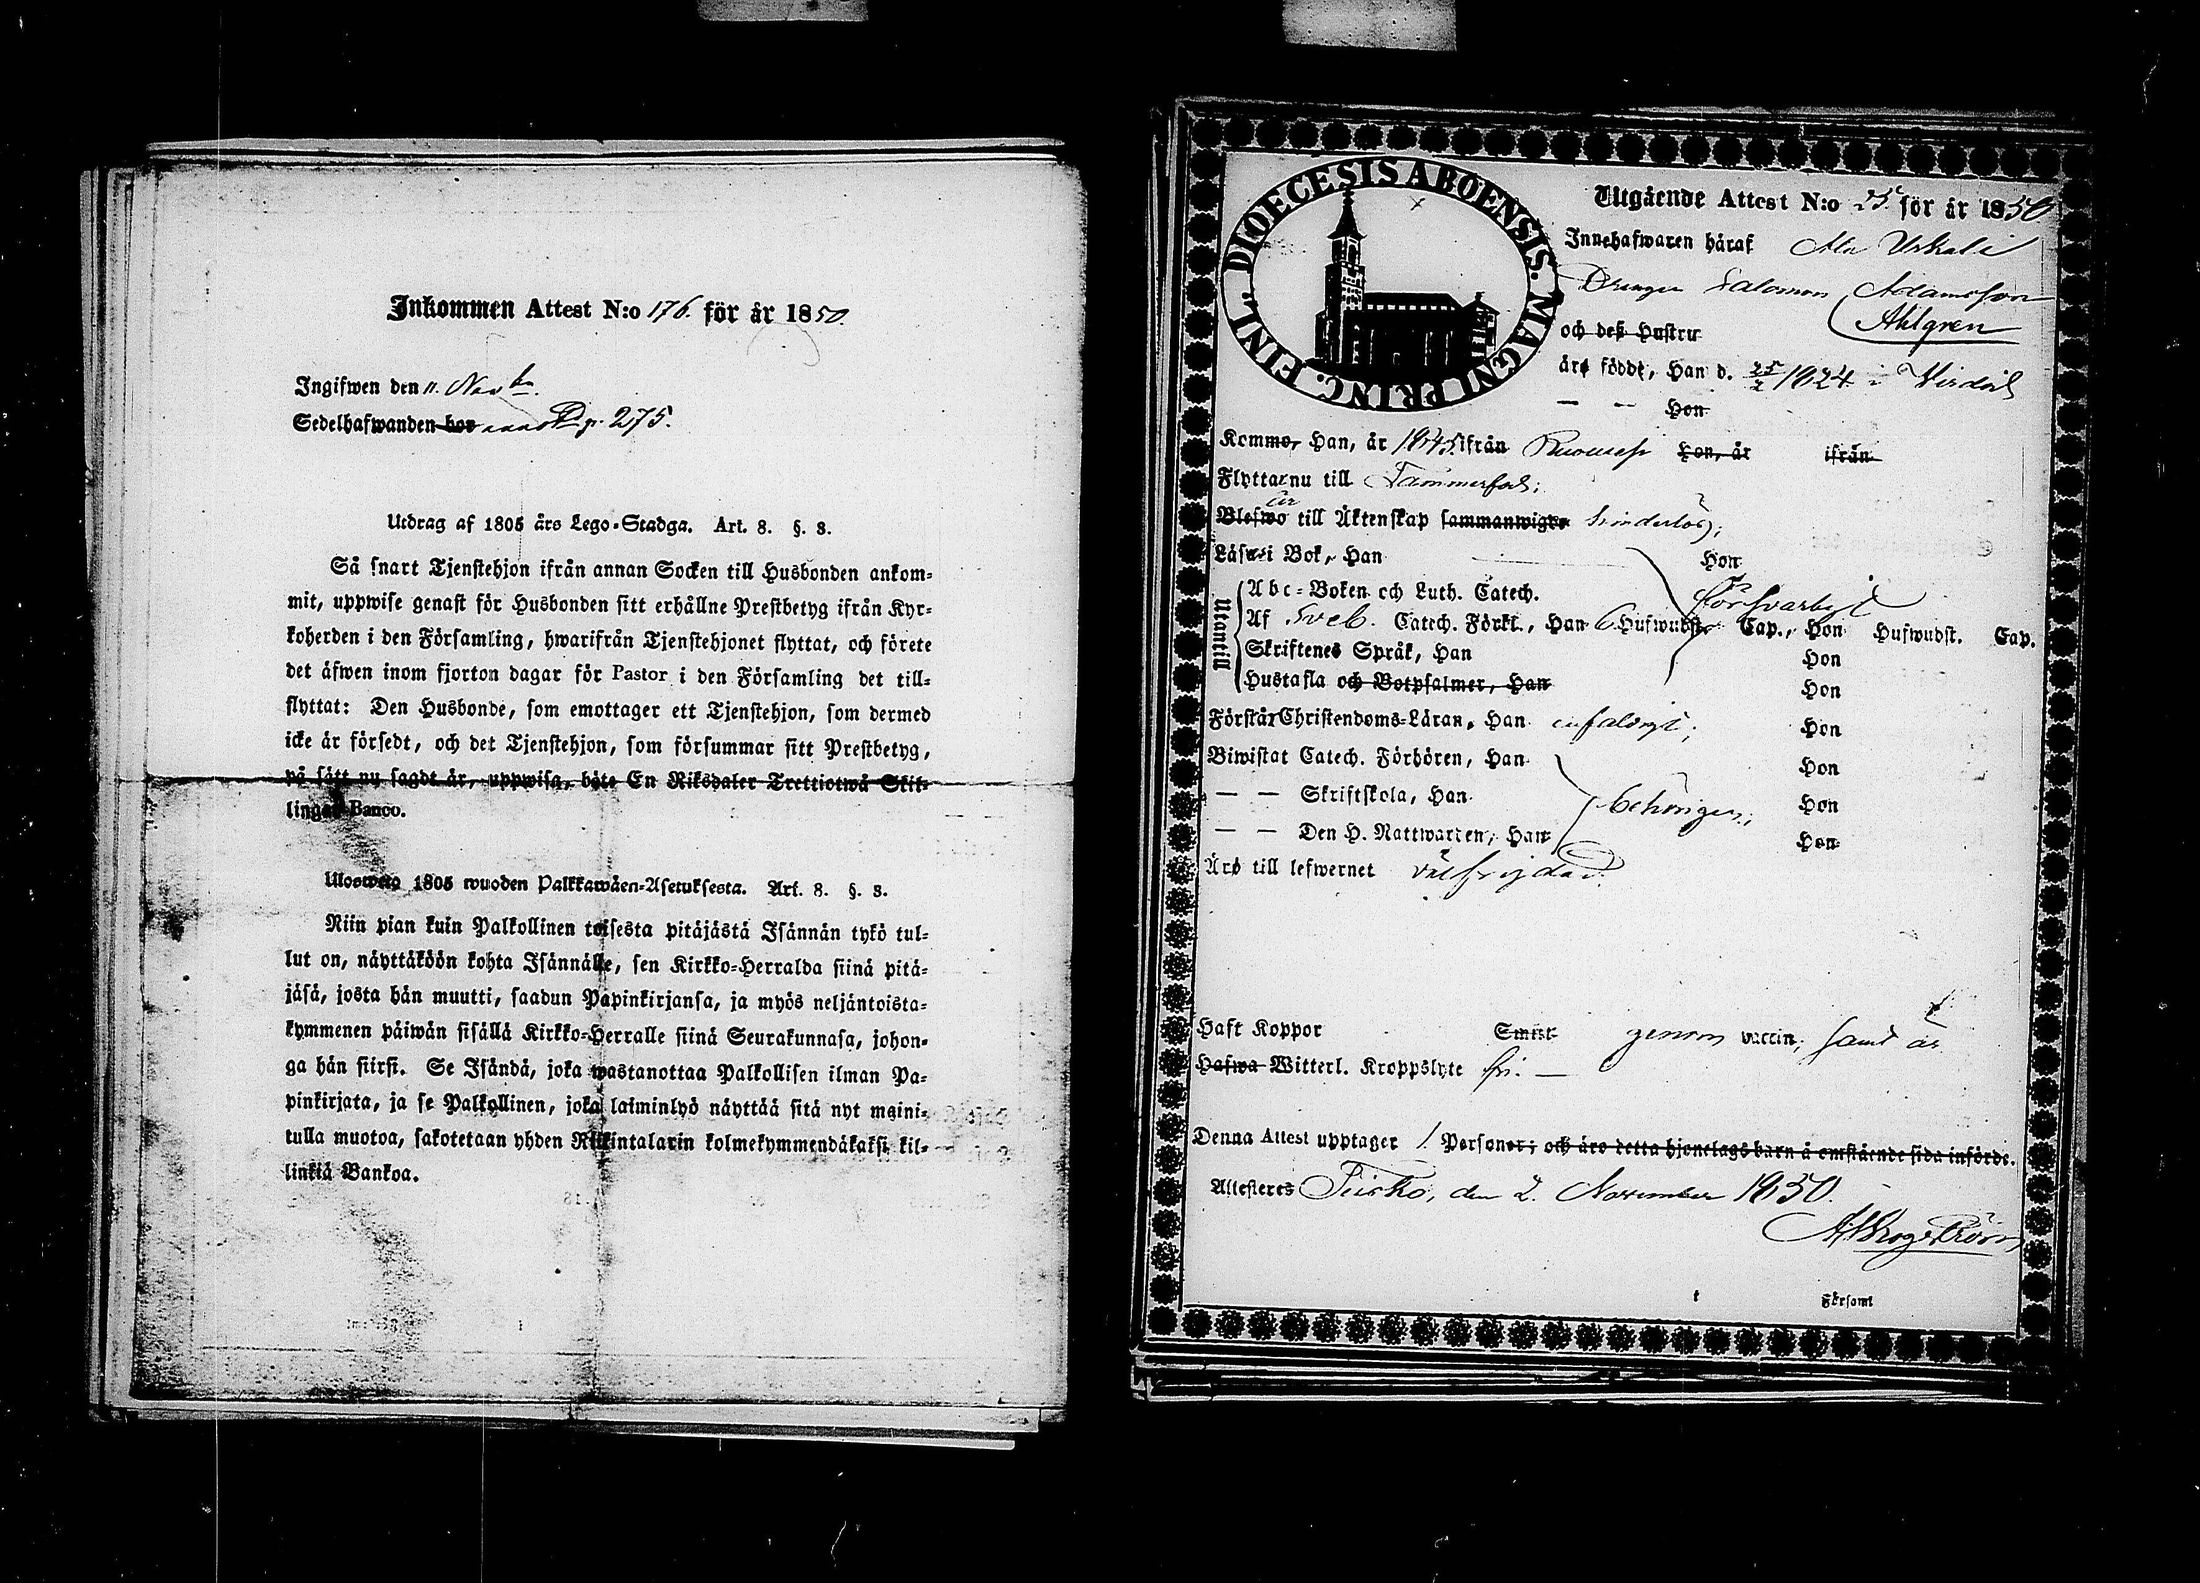 Inkommen Attest N:o 176. för år 1850.
Ingifwen den 11. Novbr.
Sedelhafwanden bor pag. 275.
Utdrag af 1805 års Lego-Stadga. Art. 8. §. 8.
Så snart Tjenstehjon ifrån annan Socken till Husbonden ankom-
mit, uppwise genast för Husbonden sitt erhållne Prestbetyg ifrån Kyr-
koherden i den Församling, hwarifrån Tjenstehjonet flyttat, och förete
det äfwen inom fjorton dagar för Pastor i den Församling det till-
flyttat: Den Husbonde, som emottager ett Tjenstehjon, som dermed
icke är försedt, och det Tjenstehjon, som försummar sitt Prestbetyg,
på sätt nu sagdt är, uppwisa, böte En Riksdaler Trettiotwå Skil-
lingar Banco.
Ulosweto 1805 wuoden Palkkawäen-Asetuksesta. Art. 8. §. 8.
Niin pian kuin Palkollinen toisesta pitäjästä Isännän tykö tul-
lut on, näyttäköön kohta Isännälle, sen Kirkko-Herralda siinä pitä-
jäsä, josta hän muutti, saadun Papinkirjansa, ja myös neljäntoista-
kymmenen päiwän sisällä Kirkko-Herralle siinä Seurakunnasa, johon-
ga hän siirsi. Se Isändä, joka wastanottaa Palkollisen ilman Pa-
pinkirjata, ja se Palkollinen, joka laiminlyö näyttää sitä nyt maini-
tulla muotoa, sakotetaan yhden Riikintalarin kolmekymmendäkaksi kil-
linkiä Bankoa.
DIOECESIS ABOENSIS. MAGNI PRINC. FINL.
Utgående Attest N:o 25. för år 1850
Innehafwaren häraf Ala Uskali
Drengen Salomon Adamsson
Ahlgren
och deß Hustru
äro födde, Han d. 25/2 1824 i Virdois
— — Hon
Kommo, Han, år 1845 ifrån Ruovesi Hon, år ifrån
Flyttar nu till Tammerfors;
är
Blefwo till Äktenskap sammanwigde hinderlös;
Läser i Bok, Han Hon
försvarligt
Utantill
Abc-Boken och Luth. Catech.
Af Sveb. Catech. Förkl., Han 6 Hufwudst. Cap., Hon Hufwudst. Cap.
Skriftenes Språk, Han Hon
Hustafla och Botpsalmer, Han Hon
Förstår Christendoms-Läran, Han enfaldigt; Hon
Biwistat Catech. Förhören, Han Hon
— — Skriftskola, Han behörigen; Hon
— — Den H. Nattwarden, Han Hon
Äro till lefwernet välfrejdad.
Haft Koppor Smitt genom vaccin, samt är
Hafwa Witterl. Kroppslyte fri. —
Denna Attest upptager 1 Personer; och äro detta hjonelags barn å omstående sida införde.
Attesteres Teisko, den 2. November 1850.
Församl